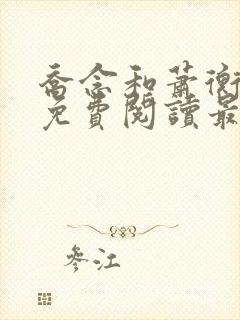 喬念和蕭衡
免費閱讀最
參江